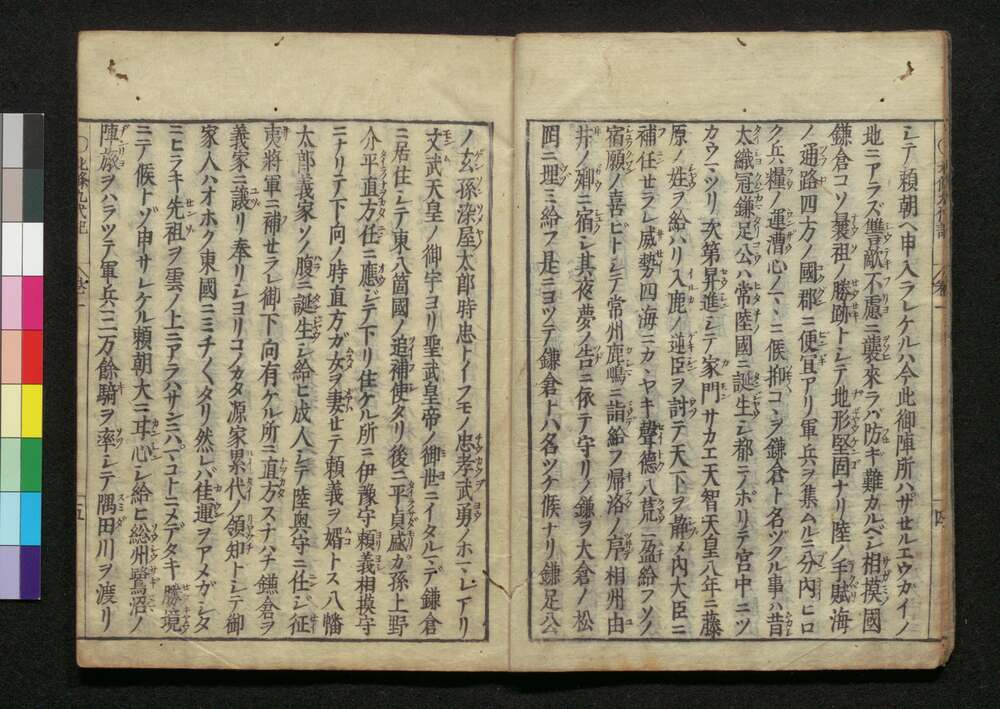 シテ頼朝ヘ申入ラレケルハ今此御陣所ハザセルエウカイノ
地ニアラズ讐敵不慮ニ襲來ラバ防ギ難カルベシ相摸國
鎌倉コソ曩祖ノ勝跡トシテ地形堅固ナリ陸ノ手賦海
ノ通路四方ノ國郡ニ便宜アリ軍兵ヲ集ムルニ分内ヒロ
ク兵糧ノ運漕心ノマヽニ候抑コヽヲ鎌倉ト名ヅクル事ハ昔
太織冠鎌足公ハ常陸國ニ誕生シ都ニテボリテ宮中ニツ
カウマツリ次第昇進シテ家門サカエ天智天皇八年ニ藤
原ノ姓ヲ給ハリ入鹿ノ逆臣ヲ討テ天下ヲ静メ内大臣ニ
補任セラレ威勢四海ニカヽヤキ聲德八荒ニ盈給フソノ
宿願ノ喜ビトシテ常州鹿嶋ニ詣給フ帰洛ノ序相州由
井ノ郷ニ宿シ其夜夢ノ告ニ依テ守リノ鎌ヲ大倉ノ松
岡ニ埋ミ給フ是ニヨツテ鎌倉トハ名ツケ候ナリ鎌足公
四
ノ玄孫染屋太郎時忠トイフモノ忠孝武勇ノホマレアリ
文武天皇ノ御宇ヨリ聖武皇帝ノ御世ニイタルマデ鎌倉
ニ居住シテ東八箇國ノ追補使タリ後ニ平貞盛ガ孫上野
介平直方任ニ應ジテ下リ住ケル所ニ伊豫守頼義相摸守
ニナリテ下向ノ時直方ガ女ヲ妻セテ頼義ヲ婿トス八幡
太郎義家ソノ腹ニ誕生シ給ヒ成人シテ陸奥守ニ任ジ征
夷將軍ニ補セラレ御下向有ケル所ニ直方スナハチ鎌倉ヲ
義家ニ譲リ奉リシヨリコノカタ源家累代ノ領知トシテ御
家人ハオホク東國ニミチ〱タリ然レバ佳運ヲアメガシタ
ニヒラキ先祖ヲ雲ノ上ニアラハサンニハマコトニメデタキ勝境
ニテ候トゾ申サレケル頼朝大ニ耳心シ給ヒ総州鷺沼ノ
陣旅ヲハラツテ軍兵二万餘騎ヲ率シテ隅田川ヲ渡リ
北條九代記
卷一
五